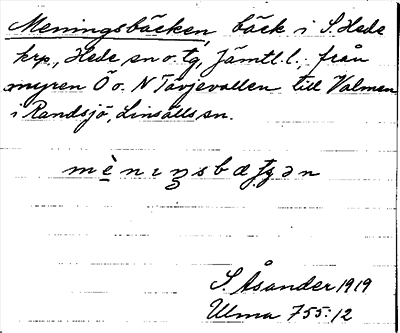 Meningsbäcken, bäck i S. Hede
krp., Hede sn o. tg, Jämtl. l., från
myren Ö o. N Tävjevallen till Valmen
i Randsjö, Linsälls sn.
mènıŋsbætɡən
S. Åsander 1919
Ulma 755:12